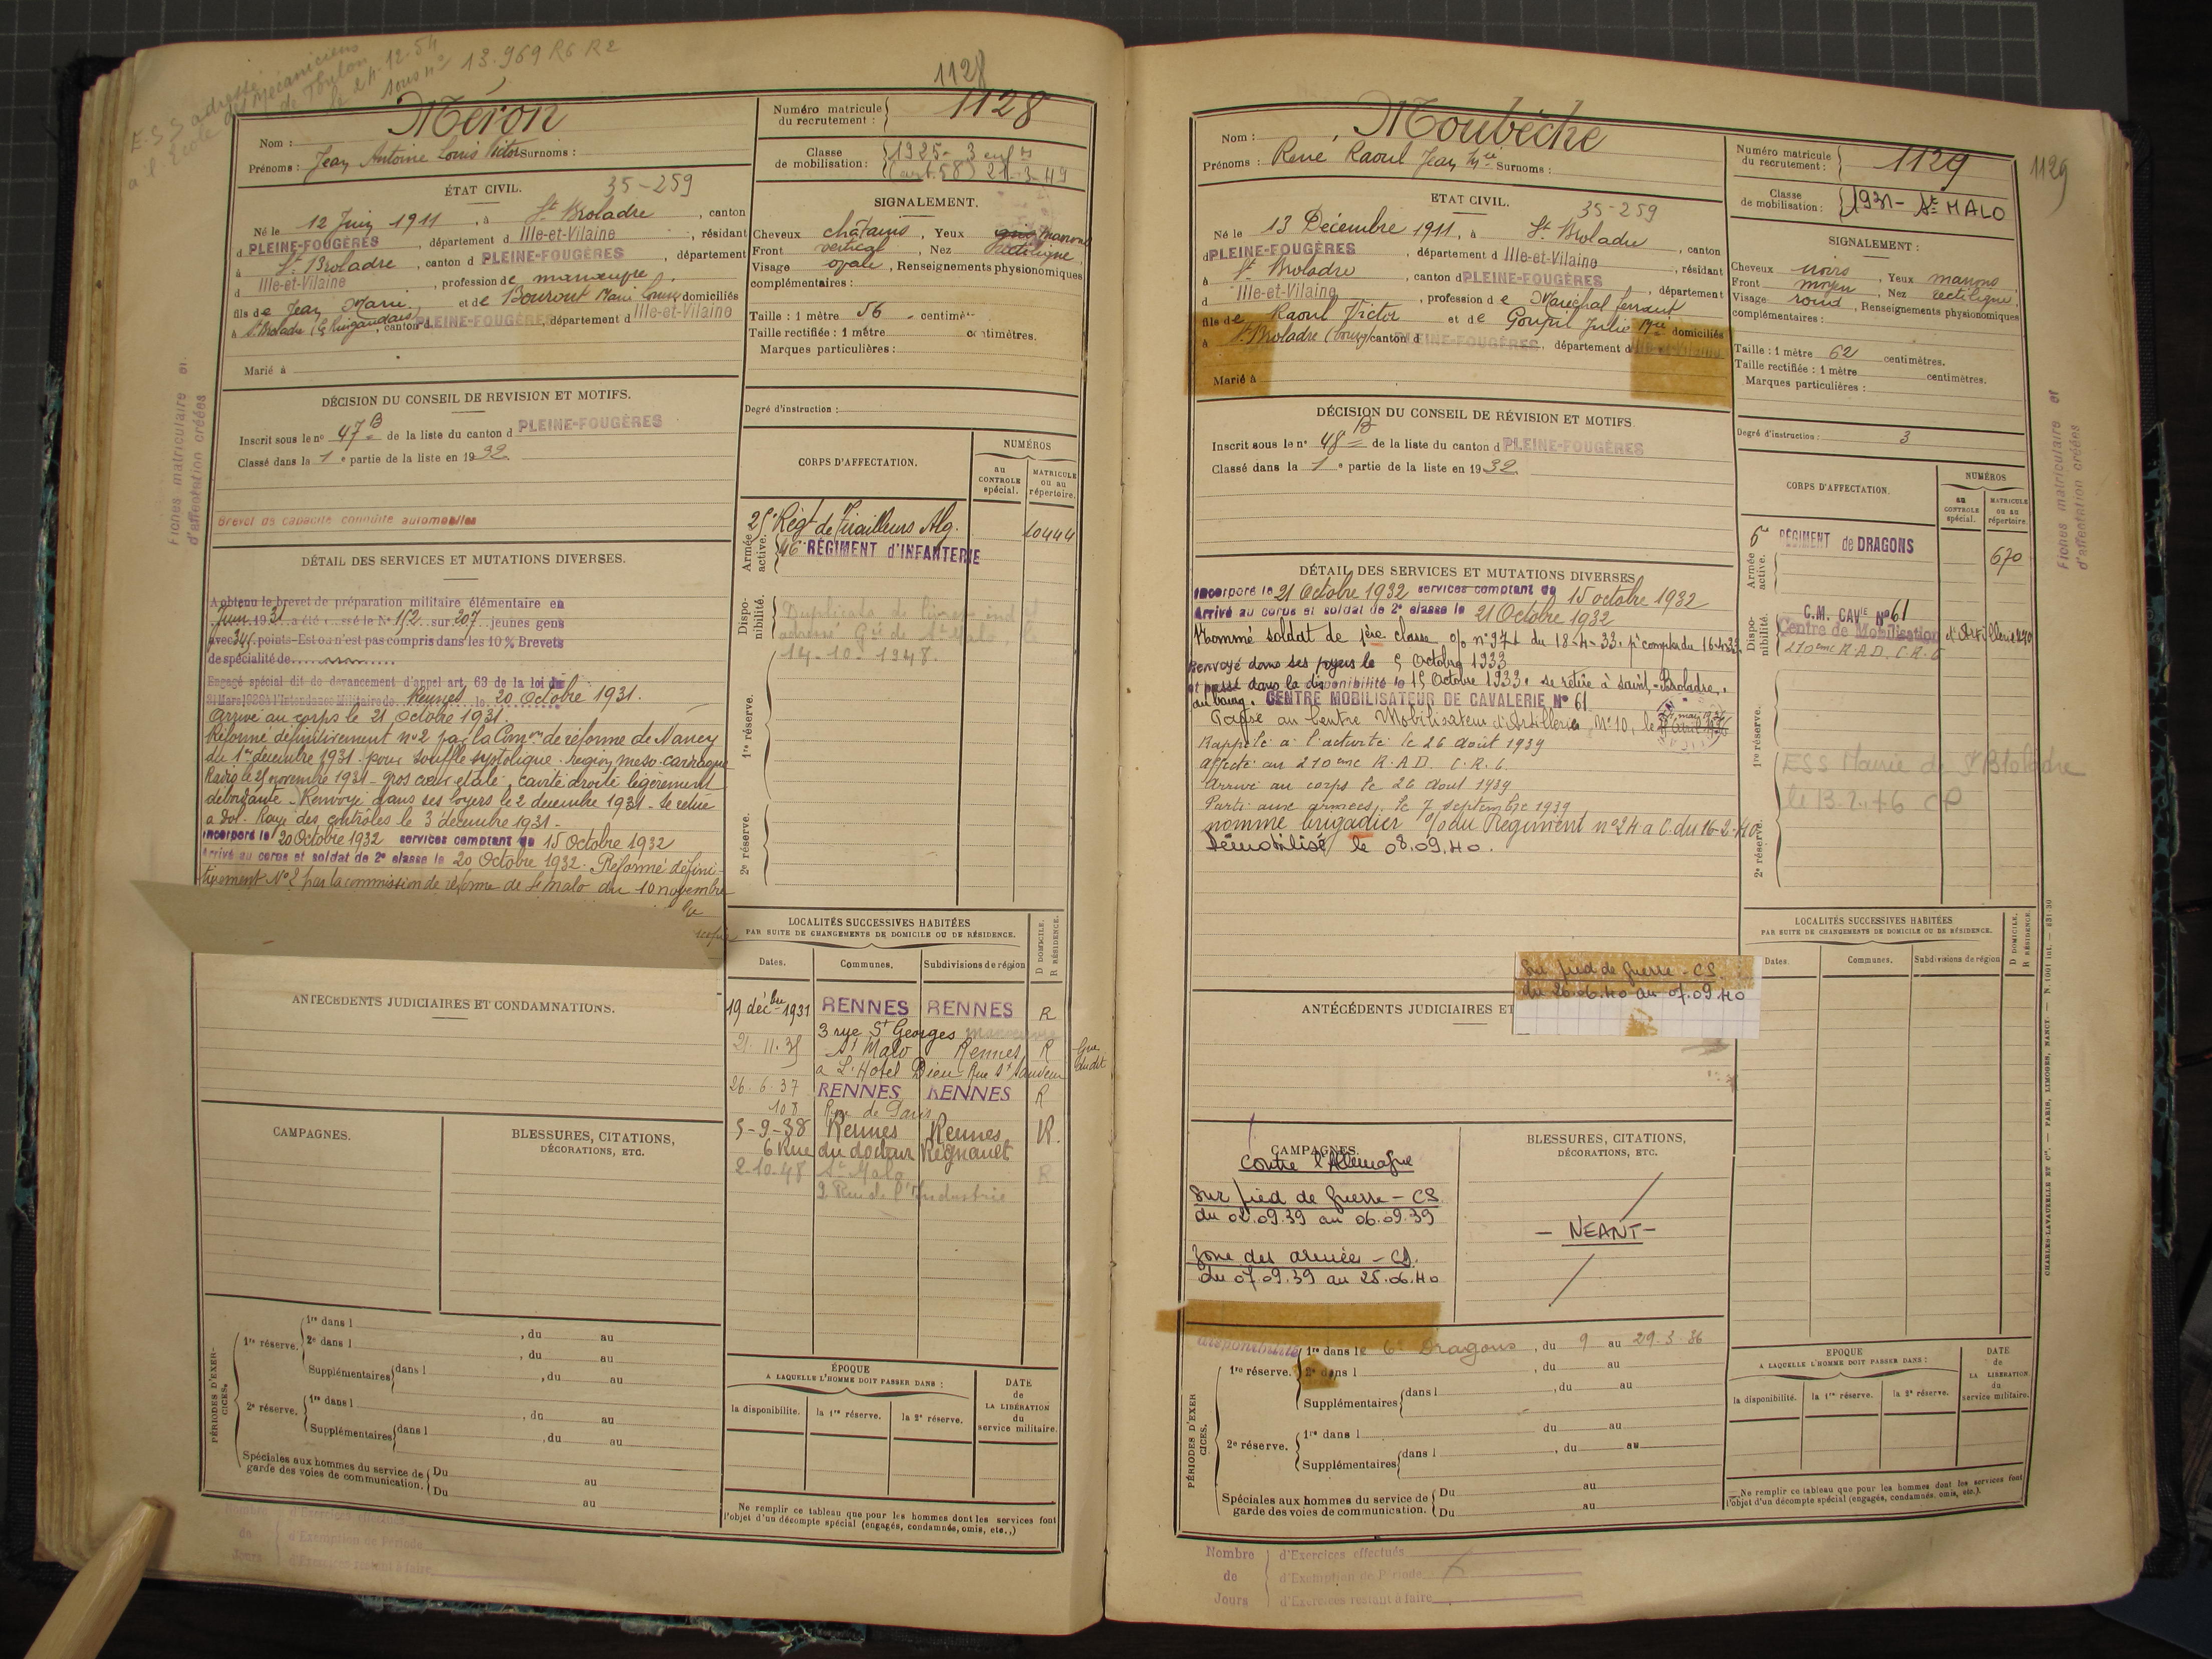 E.S.S adressé
à l'Ecole des Mécaniciens
de Toulon
le 24.12.54
sous n° 13.969 R6 R2
1128
Nom : Méron
Prénoms : Jean Antoine Louis Victor Surnoms :
Numéro matricule du recrutement : 1128
Classe de mobilisation : 1925 - 3 enfts
(art. 58) 21-3-49
ÉTAT CIVIL.
35-259
Né le 12 Juin 1911, à St Broladre, canton
d PLEINE-FOUGÈRES, département d Ille-et-Vilaine, résidant
à St Broladre, canton d PLEINE-FOUGÈRES, département
d Ille-et-Vilaine, profession de manœuvre,
fils de Jean Marie et de Bourout Marie Louise domiciliés
à St Broladre, canton d PLEINE-FOUGÈRES, département d Ille-et-Vilaine
Marié à
SIGNALEMENT.
Cheveux châtains, Yeux marrons
Front vertical, Nez rectiligne,
Visage ovale, Renseignements physionomiques
complémentaires :
Taille : 1 mètre 56 centimètres.
Taille rectifiée : 1 mètre centimètres.
Marques particulières :
Degré d'instruction :
DÉCISION DU CONSEIL DE REVISION ET MOTIFS.
Inscrit sous le n° 47 B de la liste du canton d PLEINE-FOUGÈRES
Classé dans la 1e partie de la liste en 1932
Brevet de capacité conduite automobiles
Fiches matriculaire et
d'affectation créées
CORPS D'AFFECTATION.
NUMÉROS
au CONTROLE spécial.
MATRICULE ou au répertoire.
Armée active.
25e Régt de Tirailleurs Alg. 10444
46e RÉGIMENT d'INFANTERIE
Disponibilité.
Duplicata de livret ind
adressé Gie de St Malo, le
14-10-1948.
1re réserve.
2e réserve.
DÉTAIL DES SERVICES ET MUTATIONS DIVERSES.
A obtenu le brevet de préparation militaire élémentaire en
Juin 1931 a été classé le N° 152 sur 207 jeunes gens
avec 345 points - Est ou n'est pas compris dans les 10 % Brevets
de spécialité de
Engagé spécial dit de devancement d'appel art. 63 de la loi du
31 Mars 1928 à l'Intendance Militaire de Rennes le 20 Octobre 1931.
Arrivé au corps le 21 Octobre 1931.
Réformé définitivement n° 2 par la Comon de réforme de Nancy
du 1er décembre 1931 pour souffle systolique région meso-cardiaque
Radio le 25 novembre 1931 - gros cœur étalé, cavité droite légèrement
débordante - Renvoyé dans ses foyers le 2 décembre 1931 - se retire
à Dol. Rayé des contrôles le 3 décembre 1931.
Incorporé le 20 Octobre 1932 services comptant du 15 Octobre 1932
Arrivé au corps et soldat de 2e classe le 20 Octobre 1932. Réformé défini-
tivement N° 2 par la commission de réforme de St Malo du 10 novembre
ANTÉCÉDENTS JUDICIAIRES ET CONDAMNATIONS.
LOCALITÉS SUCCESSIVES HABITÉES
PAR SUITE DE CHANGEMENTS DE DOMICILE OU DE RÉSIDENCE.
Dates. Communes. Subdivisions de région D DOMICILE. R RÉSIDENCE.
19 décbre 1931 RENNES RENNES R
3 rue St Georges manoeuvre
21-11-35 St Malo Rennes R
à L'Hotel Dieu - Rue St Sauveur
26.6.37 RENNES RENNES R
108 Rue de Paris
5-9-38 Rennes Rennes R.
6 Rue du docteur Regnault
2-10-48 St Malo R
9 Rue de l'Industrie
CAMPAGNES.
BLESSURES, CITATIONS,
DÉCORATIONS, ETC.
PÉRIODES D'EXERCICES.
1re réserve. 1re dans l , du au
2e dans l , du au
Supplémentaires dans l , du au
2e réserve. 1re dans l , du au
Supplémentaires dans l , du au
Spéciales aux hommes du service de garde des voies de communication. Du au
Du au
ÉPOQUE
A LAQUELLE L'HOMME DOIT PASSER DANS :
la disponibilité. la 1re réserve. la 2e réserve.
DATE de LA LIBÉRATION du service militaire.
Ne remplir ce tableau que pour les hommes dont les services font
l'objet d'un décompte spécial (engagés, condamnés, omis, etc.,)
Nombre de Jours
d'Exercices effectués
d'Exemption de Période
d'Exercices restant à faire
Nom : Moubèche
Prénoms : René Raoul Jean Mie Surnoms :
Numéro matricule du recrutement : 1129
1129
Classe de mobilisation : 1931 - St MALO
ETAT CIVIL.
35-259
Né le 13 Décembre 1911, à St Broladre, canton
d PLEINE-FOUGÈRES, département d Ille-et-Vilaine, résidant
à St Broladre, canton d PLEINE-FOUGÈRES, département
d Ille-et-Vilaine, profession de Maréchal ferrant
fils de Raoul Victor et de Goupil Julie Mie domiciliés
à St Broladre (bourg) canton d PLEINE-FOUGÈRES, département d Ille-et-Vilaine
Marié à
SIGNALEMENT :
Cheveux noirs, Yeux marrons,
Front moyen, Nez rectiligne,
Visage rond, Renseignements physionomiques
complémentaires :
Taille : 1 mètre 62 centimètres.
Taille rectifiée : 1 mètre centimètres.
Marques particulières :
Degré d'instruction : 3
DÉCISION DU CONSEIL DE RÉVISION ET MOTIFS.
Inscrit sous le n° 48 B de la liste du canton d PLEINE-FOUGÈRES
Classé dans la 1e partie de la liste en 1932
Fiches matriculaire et
d'affectation créées
CORPS D'AFFECTATION.
NUMÉROS
au CONTROLE spécial.
MATRICULE ou au répertoire.
Armée active.
6e RÉGIMENT de DRAGONS 670
Disponibilité.
C.M. CAVIE N° 61
Centre de Mobilisation d'Artillerie n°10
210eme R.A.D. C.R.6
1re réserve.
ESS Mairie de St Broladre
le 13.2.46 CP
2e réserve.
DÉTAIL DES SERVICES ET MUTATIONS DIVERSES
Incorporé le 21 Octobre 1932 services comptant du 15 octobre 1932
Arrivé au corps et soldat de 2e classe le 21 Octobre 1932
Nommé soldat de 1ère classe o/o n° 971 du 18-4-33. pr compter du 16-4-33
Renvoyé dans ses foyers le 5 Octobre 1933
et passé dans la disponibilité le 15 Octobre 1933. se retire à Saint-Broladre.
au bourg. CENTRE MOBILISATEUR DE CAVALERIE N° 61
Passé au Centre Mobilisateur d'Artillerie N° 10, le
Rappelé à l'activité le 26 août 1939
affecté au 210eme R.A.D. C.R.6.
Arrivé au corps le 26 aout 1939
Parti aux armées, le 7 septembre 1939
nommé brigadier o/o du Régiment n° 24 a C. du 16-2-40
Démobilisé le 08.09.40.
Sur pied de guerre - CS.
du 26.06.40 au 07.09.40
ANTÉCÉDENTS JUDICIAIRES ET
LOCALITÉS SUCCESSIVES HABITÉES
PAR SUITE DE CHANGEMENTS DE DOMICILE OU DE RÉSIDENCE.
Dates. Communes. Subdivisions de région D DOMICILE. R RÉSIDENCE.
CAMPAGNES.
Contre l'Allemagne
Sur pied de guerre - CS
du 02.09.39 au 06.09.39
Zone des armée - CS.
du 07.09.39 au 25.06.40
BLESSURES, CITATIONS,
DÉCORATIONS, ETC.
- NEANT -
PÉRIODES D'EXERCICES.
disponibilité 1re dans le 6e Dragons, du 9 au 29.3.36
1re réserve. 2e dans l , du au
Supplémentaires dans l , du au
2e réserve. 1re dans l du au
Supplémentaires dans l , du au
Spéciales aux hommes du service de garde des voies de communication. Du au
Du au
EPOQUE
A LAQUELLE L'HOMME DOIT PASSER DANS :
la disponibilité. la 1re réserve. la 2e réserve.
DATE de LA LIBÉRATION du service militaire.
Ne remplir ce tableau que pour les hommes dont les services font
l'objet d'un décompte spécial (engagés, condamnés, omis, etc.).
Nombre de Jours
d'Exercices effectués
d'Exemption de Période
d'Exercices restant à faire
CHARLES-LAVAUZELLE ET Cie. — PARIS, LIMOGES, NANCY. — N. 1001 int. — 831-30